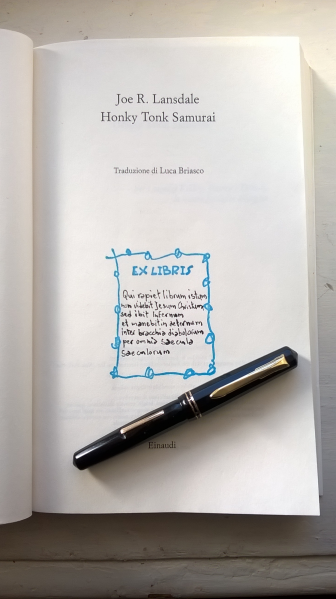 Joe R. Lansdale
Honky Tonk Samurai
Traduzione di Luca Briasco
EX LIBRIS
Qui rapiet librum istum
non videbit Jesum Christum
sed ibit Infernum
et manebit in aeternum
inter bracchia diabolorum
per omnia saecula
saeculorum
Einaudi